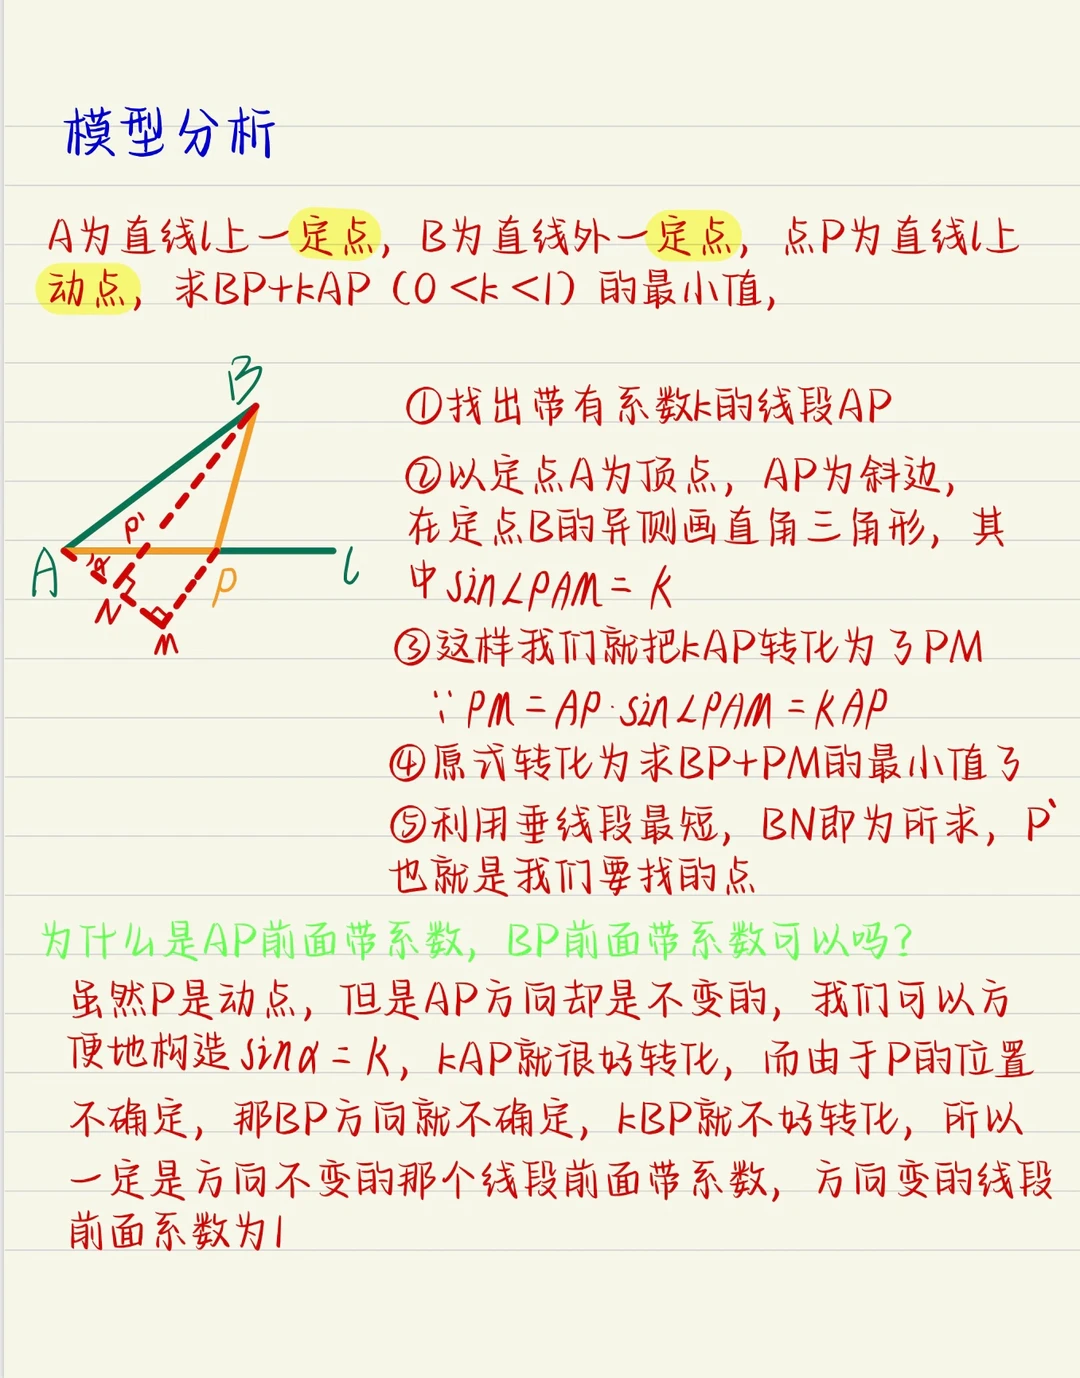 模型分析
A为直线l上一定点，B为直线外一定点，点P为直线l上
动点，求BP+kAP（0<k<1）的最小值，
B
①找出带有系数k的线段AP
②以定点A为顶点，AP为斜边，
在定点B的异侧画直角三角形，其
中sin∠PAM=K
P'
A
α
P
l
N
M
③这样我们就把kAP转化为了PM
∵PM=AP·sin∠PAM=KAP
④原式转化为求BP+PM的最小值了
⑤利用垂线段最短，BN即为所求，P`
也就是我们要找的点
为什么是AP前面带系数，BP前面带系数可以吗？
虽然P是动点，但是AP方向却是不变的，我们可以方
便地构造sinα=K，kAP就很好转化，而由于P的位置
不确定，那BP方向就不确定，kBP就不好转化，所以
一定是方向不变的那个线段前面带系数，方向变的线段
前面系数为1